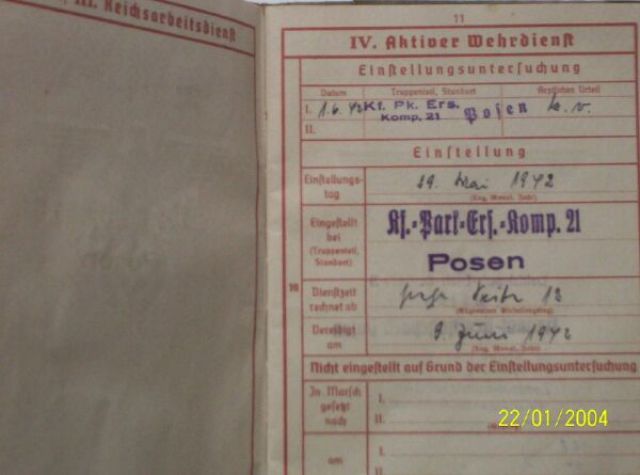 III. Reichsarbeitsdienst
11
IV. Aktiver Wehrdienst
Einstellungsuntersuchung
Datum Truppenteil, Standort Ärztliches Urteil
I. 1.6.42 Kf. Pk. Ers. Komp. 21 Posen k.v.
II.
Einstellung
Einstellungs-
tag
29. Mai 1942
(Tag, Monat, Jahr)
Eingestellt
bei
(Truppenteil,
Standort)
Kf.-Park-Ers.-Komp. 21
Posen
Dienstzeit
rechnet ab
siehe Seite 12
Vereidigt
am
9. Juni 1942
(Tag, Monat, Jahr)
Nicht eingestellt auf Grund der Einstellungsuntersuchung
In Marsch
gesetzt
nach
I.
II.
am
I.
II.
22/01/2004